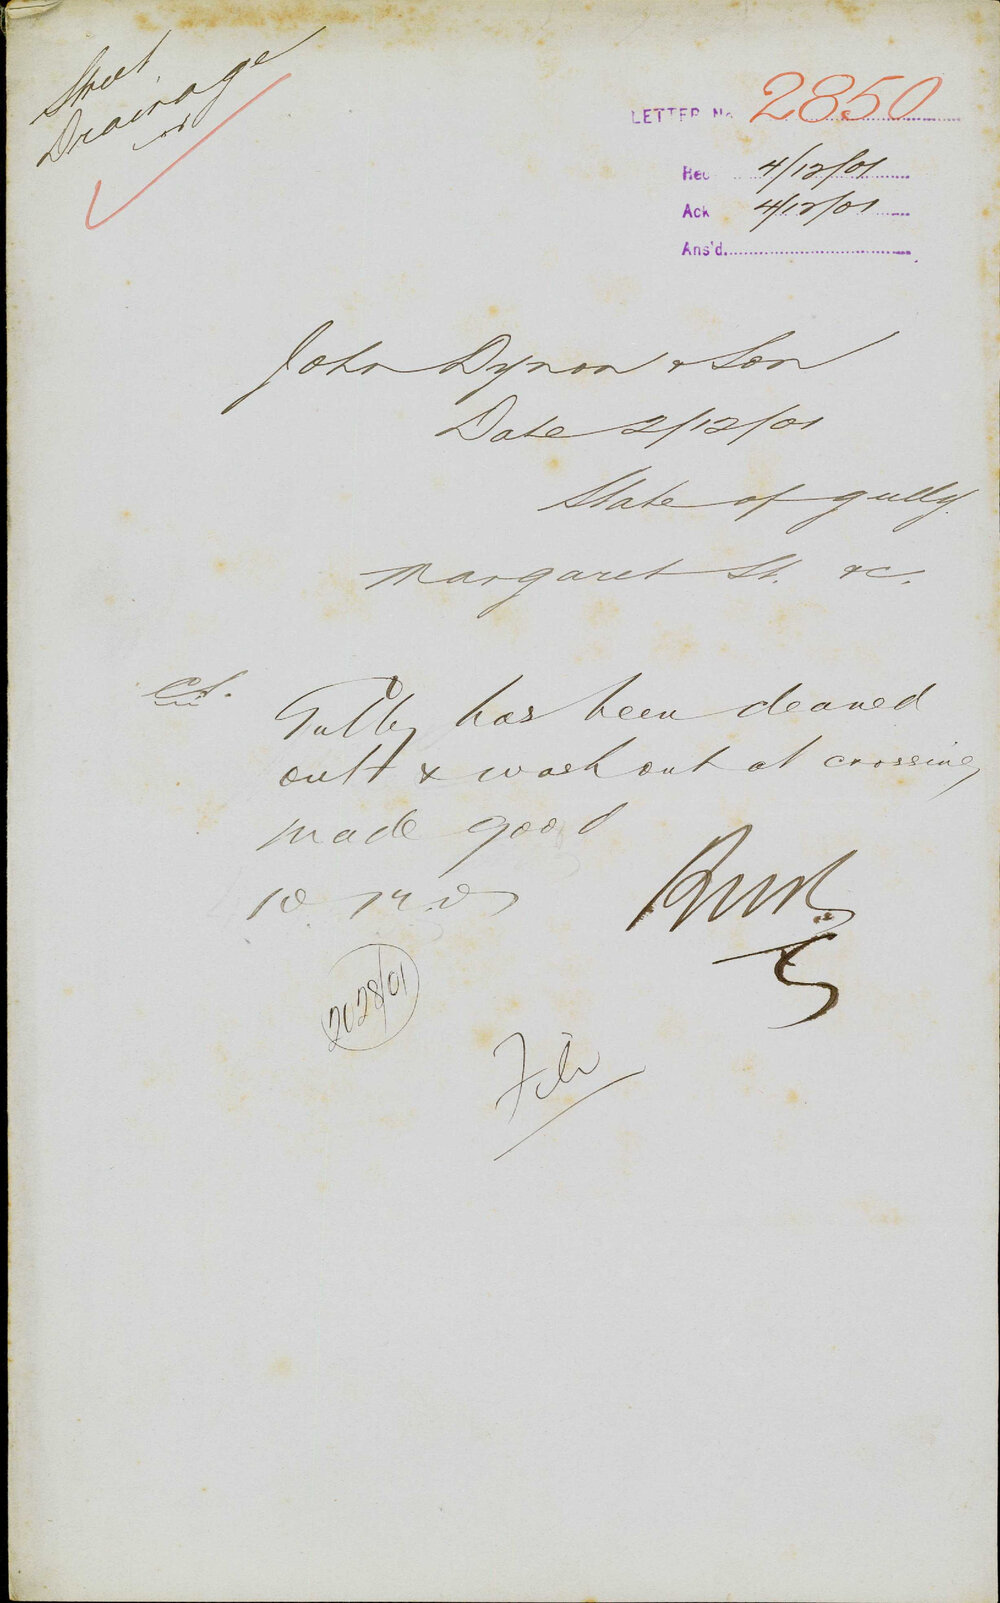 Street
Drainage
LETTER No 2850
Rec 4/12/01
Ack 4/12/01
Ans'd
John Dynon & Son
Date 2/12/01
State of gully
Margaret St. &c.
Gully has been cleaned
out & wash out at crossing
made good
10 12 01
2028/01
File